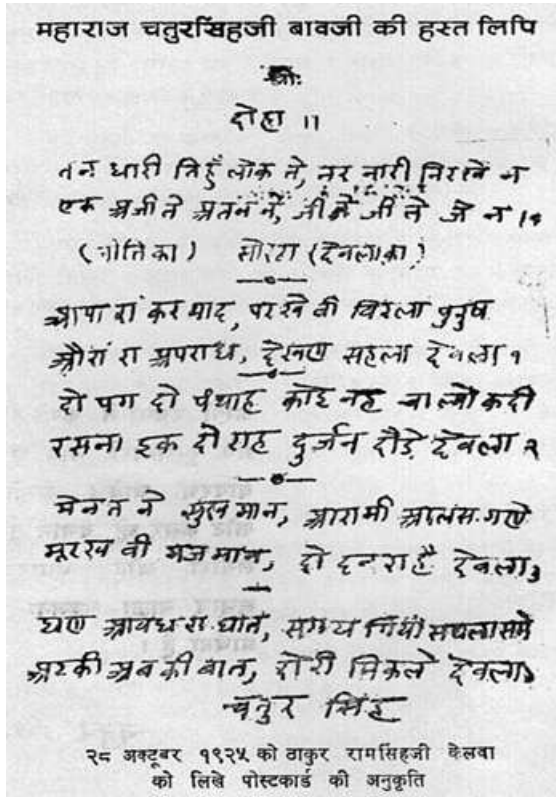 महाराज चतुरसिंहजी बावजी की हस्त लिपि
श्रीः
दोहा ॥
तन धारी त्रिहुँ लोक ने, नर नारी निरखे न
एक अजीते आतम ने, जीने जीते जे न १
(नीति का) सोरठा (देवला का)
आपा रां कर याद, परखे वी विरला पुरुष
औरां रा अपराध, देखण सहला देवला १
दो पग दो पंथाह कोई नह चाल्यो कदी
रसना इक दो राह दुर्जन दौड़े देवला २
मेनत ने सुख मान, आरामी आलस गणे
मूरख वी मजमान, दो दन रा है देवला ३
घण आवध रा घात, समय सबला समे
अटकी अबकी वात, दोरी निकले देवला
चतुर सिंह
२८ अक्टूबर १९२५ को ठाकुर रामसिंहजी केलवा
को लिखे पोस्टकार्ड की अनुकृति